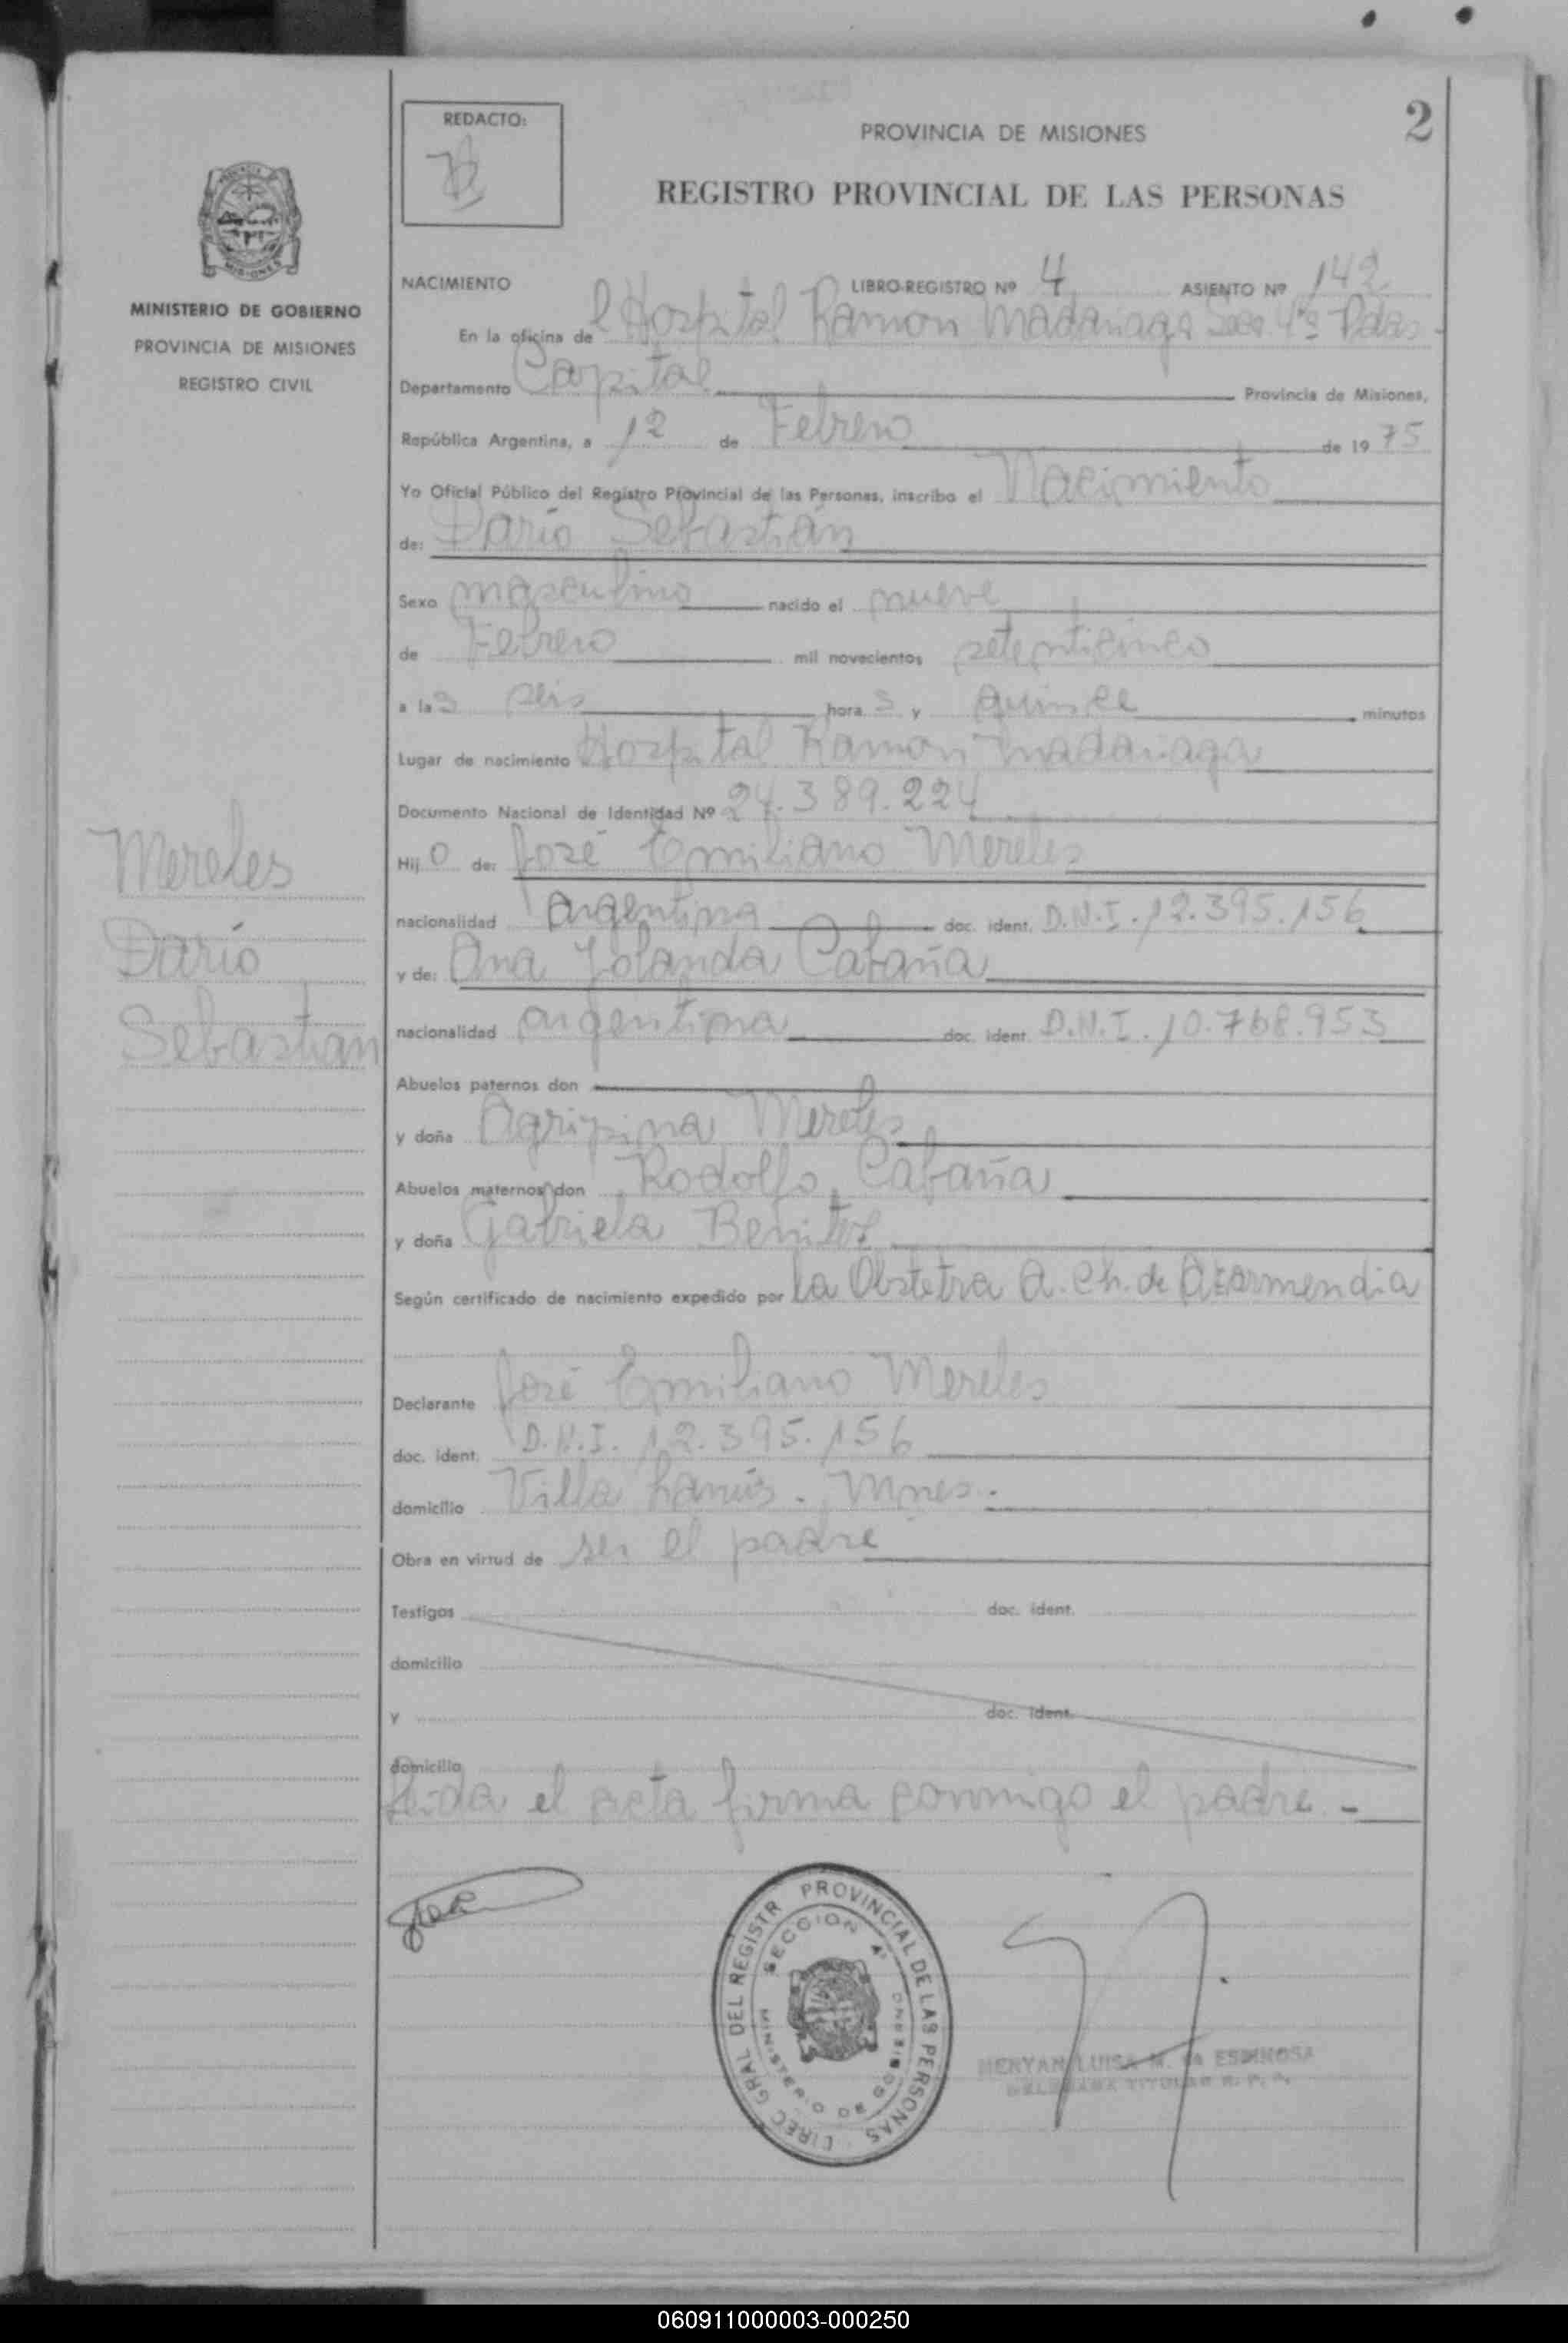 2
REDACTO:
PROVINCIA DE MISIONES
REGISTRO PROVINCIAL DE LAS PERSONAS
MINISTERIO DE GOBIERNO
PROVINCIA DE MISIONES
REGISTRO CIVIL
NACIMIENTO LIBRO-REGISTRO Nº 4 ASIENTO Nº 142
En la oficina de l Hospital Ramon Madariaga Secc 4ª Pdas.
Departamento Capital Provincia de Misiones,
República Argentina, a 12 de Febrero de 1975
Yo Oficial Público del Registro Provincial de las Personas, inscribo el Nacimiento
de: Darío Sebastián
Sexo masculino nacido el nueve
de Febrero mil novecientos setenticinco
a las seis horas y quince minutos
Lugar de nacimiento Hospital Ramon Madariaga
Documento Nacional de Identidad Nº 24.389.224
Hijo de: José Emiliano Mereles
nacionalidad argentina doc. ident. D.N.I. 12.395.156
y de: Ana Yolanda Cabaña
nacionalidad argentina doc. ident. D.N.I. 10.768.953
Abuelos paternos don
y doña Agripina Mereles
Abuelos maternos don Rodolfo Cabaña
y doña Gabriela Benitez
Según certificado de nacimiento expedido por la Obstetra A. Ch. de Azarmendia
Declarante José Emiliano Mereles
doc. ident. D.N.I. 12.395.156
domicilio Villa Lanús - Mnes.
Obra en virtud de ser el padre
Testigos doc. ident.
domicilio
y doc. ident.
domicilio
Leida el acta firma conmigo el padre -
Mereles
Darío
Sebastian
DIREC GRAL DEL REGISTR PROVINCIAL DE LAS PERSONAS
SECCION 4ª
MINISTERIO DE GOBIERNO
LUISA M. de ESPINOSA
TITULAR R. P. P.
060911000003-000250